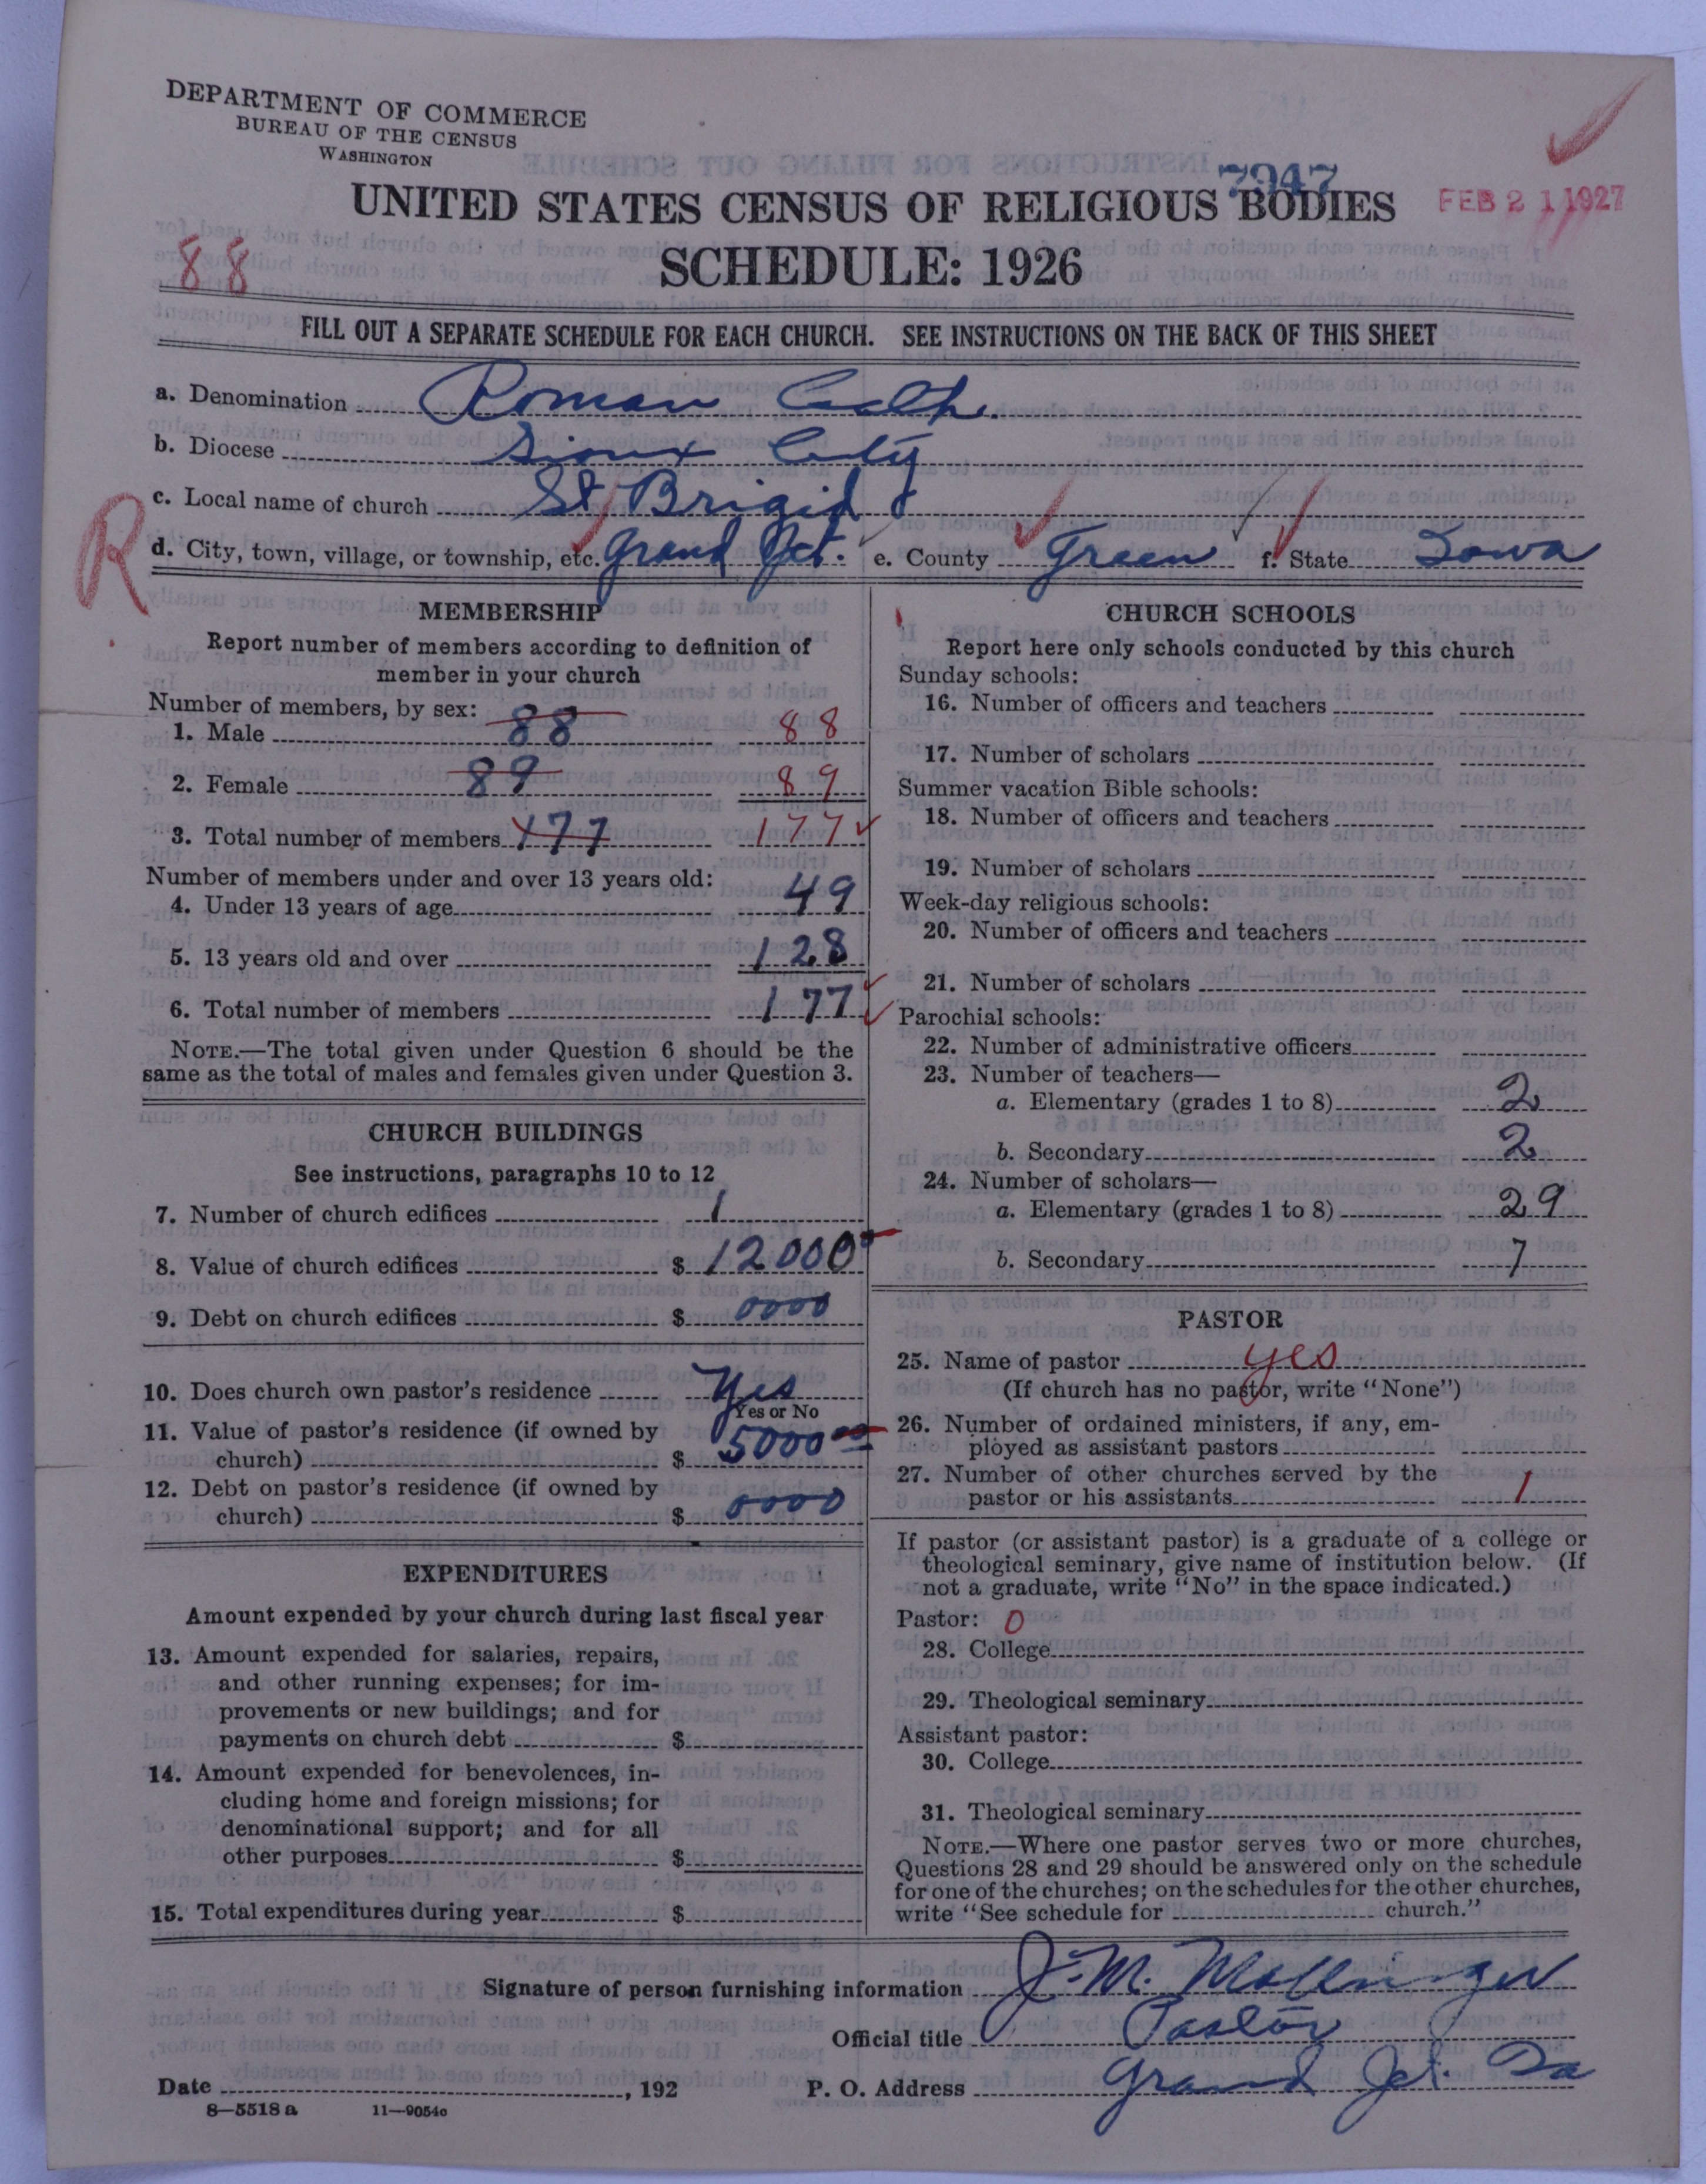 DEPARTMENT OF COMMERCE
BUREAU OF THE CENSUS
WASHINGTON
7947
UNITED STATES CENSUS OF RELIGIOUS BODIES
FEB 21 1927
88
SCHEDULE: 1926
FILL OUT A SEPARATE SCHEDULE FOR EACH CHURCH. SEE INSTRUCTIONS ON THE BACK OF THIS SHEET
a. Denomination Roman Cath.
b. Diocese Sioux City
c. Local name of church St Brigid
R
d. City, town, village, or township, etc. Grand Jct. e. County Green f. State Iowa
MEMBERSHIP
Report number of members according to definition of
member in your church
Number of members, by sex:
1. Male 88 88
2. Female 89 89
3. Total number of members 177 177
Number of members under and over 13 years old:
4. Under 13 years of age 49
5. 13 years old and over 128
6. Total number of members 177
NOTE.—The total given under Question 6 should be the
same as the total of males and females given under Question 3.
CHURCH BUILDINGS
See instructions, paragraphs 10 to 12
7. Number of church edifices 1
8. Value of church edifices $ 12000
9. Debt on church edifices $ 0000
10. Does church own pastor's residence Yes
Yes or No
11. Value of pastor's residence (if owned by
church) $ 5000
12. Debt on pastor's residence (if owned by
church) $ 0000
EXPENDITURES
Amount expended by your church during last fiscal year
13. Amount expended for salaries, repairs,
and other running expenses; for im-
provements or new buildings; and for
payments on church debt $
14. Amount expended for benevolences, in-
cluding home and foreign missions; for
denominational support; and for all
other purposes $
15. Total expenditures during year $
CHURCH SCHOOLS
Report here only schools conducted by this church
Sunday schools:
16. Number of officers and teachers
17. Number of scholars
Summer vacation Bible schools:
18. Number of officers and teachers
19. Number of scholars
Week-day religious schools:
20. Number of officers and teachers
21. Number of scholars
Parochial schools:
22. Number of administrative officers
23. Number of teachers—
a. Elementary (grades 1 to 8) 2
b. Secondary 2
24. Number of scholars—
a. Elementary (grades 1 to 8) 29
b. Secondary 7
PASTOR
25. Name of pastor yes
(If church has no pastor, write "None")
26. Number of ordained ministers, if any, em-
ployed as assistant pastors
27. Number of other churches served by the
pastor or his assistants 1
If pastor (or assistant pastor) is a graduate of a college or
theological seminary, give name of institution below. (If
not a graduate, write "No" in the space indicated.)
Pastor: 0
28. College
29. Theological seminary
Assistant pastor:
30. College
31. Theological seminary
NOTE.—Where one pastor serves two or more churches,
Questions 28 and 29 should be answered only on the schedule
for one of the churches; on the schedules for the other churches,
write "See schedule for church."
Signature of person furnishing information J. M.
Official title Pastor
Date , 192 P. O. Address Grand Jct. Ia
8—5518 a 11—9054c